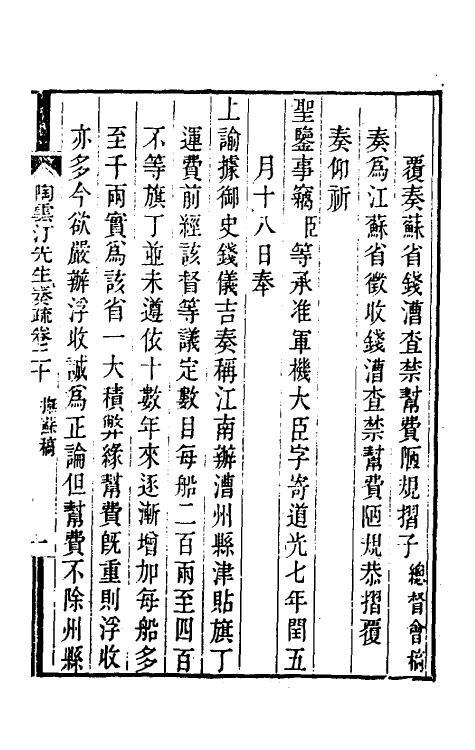 覆奏蘇省錢漕查禁幫費陋規摺子總督會稿
奏爲江蘇省徵收錢漕查禁幫費陋規恭摺覆
奏仰祈
聖鑒事竊臣等承准軍機大臣字寄道光七年閏五
月十八日奉
上諭據御史錢儀吉奏稱江南辦漕州縣津貼旗丁
運費前經該督等議定數目每船二百兩至四百
不等旗丁並未遵依十數年來逐漸增加每船多
至千兩實爲該省一大積弊緣幫費旣重則浮收
亦多今欲嚴辦浮收誠爲正論但幫費不除州縣
陶雲汀先生奏疏卷二十 撫蘇稿 一